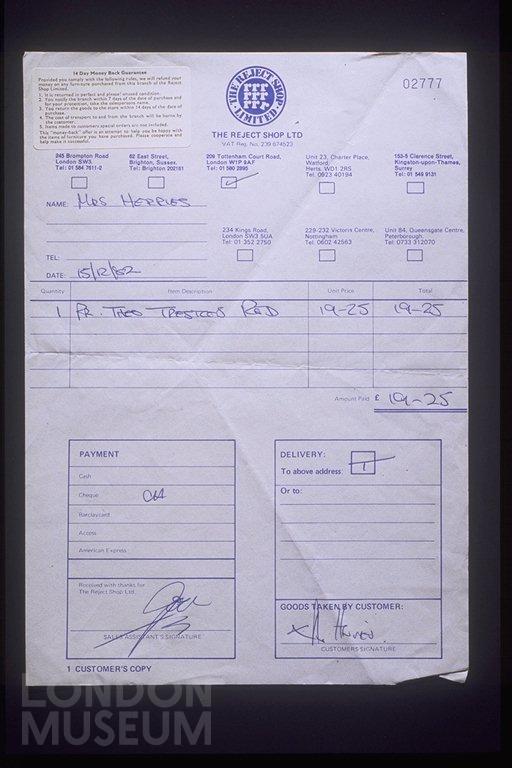 14 Day Money Back Guarantee
Provided you comply with the following rules, we will refund your
money on any furniture purchased from this branch of the Reject
Shop Limited.
1. It is returned in perfect and unused condition.
2. You notify the branch within 7 days of the date of purchase and
for your protection, take the salespersons name.
3. You return the goods to the store within 14 days of the date of
purchase.
4. The cost of transport to and from the branch will be borne by
the customer.
5. Items made to customers special orders are not included.
This "money-back" offer is an attempt to help you be happy with
the items of furniture you have purchased. Please cooperate and
help make it successful.
THE REJECT SHOP
LIMITED
02777
THE REJECT SHOP LTD
VAT Reg. No. 239 674523
245 Brompton Road
London SW3.
Tel: 01 584 7611-2
62 East Street,
Brighton, Sussex.
Tel: Brighton 202161
209 Tottenham Court Road,
London W1P 9AF
Tel: 01 580 2895
Unit 23, Charter Place,
Watford
Herts. WD1 2RS
Tel: 0923 40194
153-5 Clarence Street,
Kingston-upon-Thames,
Surrey
Tel: 01 549 9131
NAME: Mrs HERRIES
234 Kings Road,
London SW3 5UA
Tel: 01 352 2750
229-232 Victoria Centre,
Nottingham
Tel: 0602 42563
Unit 84, Queensgate Centre,
Peterborough
Tel: 0733 312070
TEL:
DATE: 15/12/82
Quantity Item Description Unit Price Total
1 PR. RED 19-25 19-25
Amount Paid £ 19-25
PAYMENT
Cash
Cheque
Barclaycard
Access
American Express
Received with thanks for
The Reject Shop Ltd.
SALES ASSISTANT'S SIGNATURE
DELIVERY:
To above address:
Or to:
GOODS TAKEN BY CUSTOMER:
CUSTOMERS SIGNATURE
1 CUSTOMER'S COPY
LONDON
MUSEUM